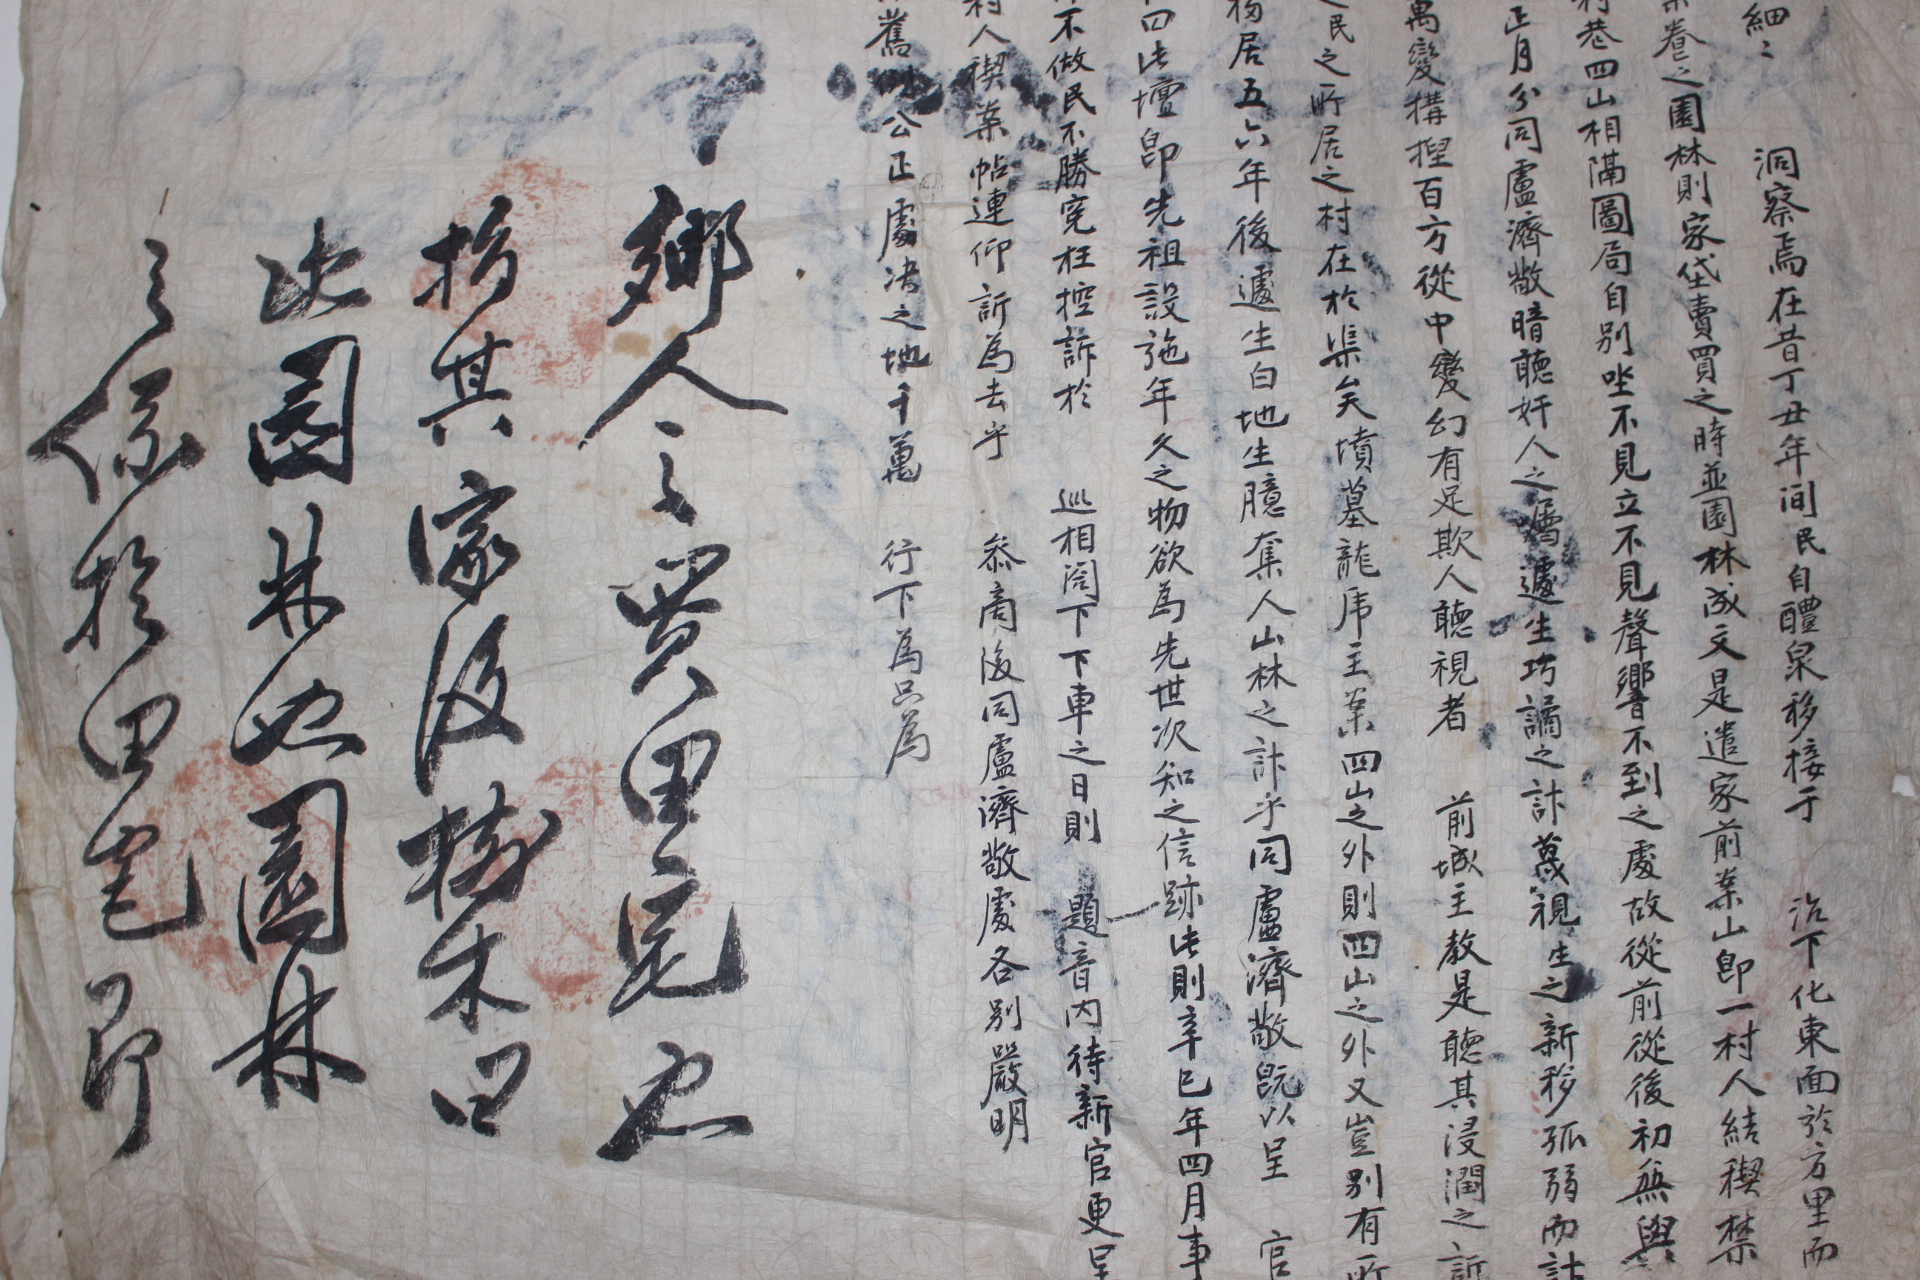 細〻 洞察焉在昔丁丑年间民自醴泉移接于 治下化東面於方里而
券之園林則家垈賣買之時並園林成文是遣家前案山卽一村人結稧禁
巷四山相隔圖局自別坐不見立不見聲響不到之處故從前從後初無與
正月分同盧濟敬暗聽奸人之遽生巧譎之計蔑視生之新移孤弱而
萬變構捏百方從中變幻有足欺人聽視者 前城主敎是聽其浸潤之訴
民之所居之村在於渠矣墳墓龍虎主案四山之外則四山之外又豈別有所
居五六年後遽生白地生臆奪人山林之計乎同盧濟敬旣以呈 官
四此壇卽先祖設施年久之物欲爲先世次知之信跡此則辛巳年四月事
不做民不勝寃枉控訴於 巡相閤下下車之日則 題音內待新官更呈
村人稧案帖連仰訴爲去乎 叅商後同盧濟敬處各別嚴明
公正處决之地千萬 行下爲只爲
鄕人之買里宅也
指其家後樹木曰
此園林也園林
之係於里宅卽